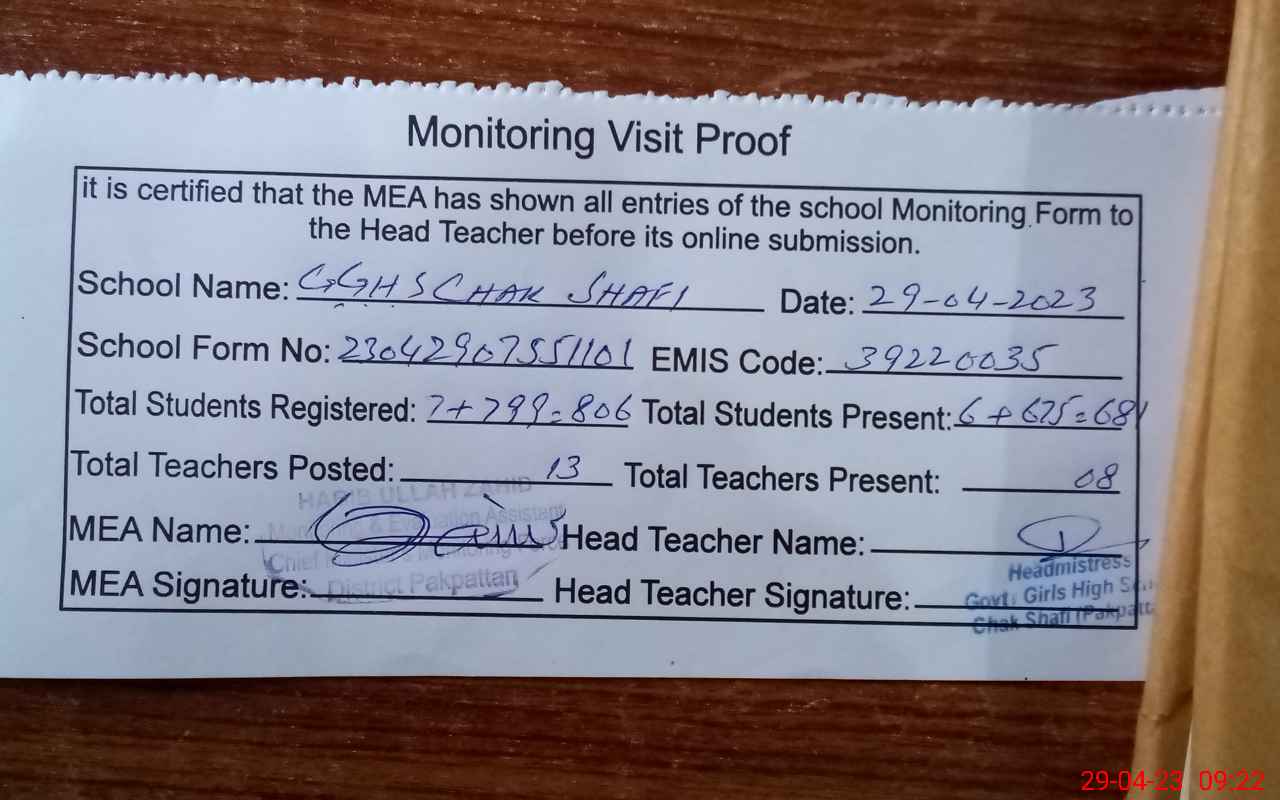 Monitoring Visit Proof
it is certified that the MEA has shown all entries of the school Monitoring Form to
the Head Teacher before its online submission.
School Name: GGHS CHAK SHAFI Date: 29-04-2023
School Form No: 23042907551101 EMIS Code: 39220035
Total Students Registered: 7+799=806 Total Students Present: 6+675=681
Total Teachers Posted: 13 Total Teachers Present: 08
HABIB ULLAH ZAHID
Monitoring & Evaluation Assistant
MEA Name: Head Teacher Name:
Chief Monitoring
District Pakpattan
Headmistress
MEA Signature: Head Teacher Signature:
Govt: Girls High
Chak Shafi (Pakpatt
29-04-23 09:22